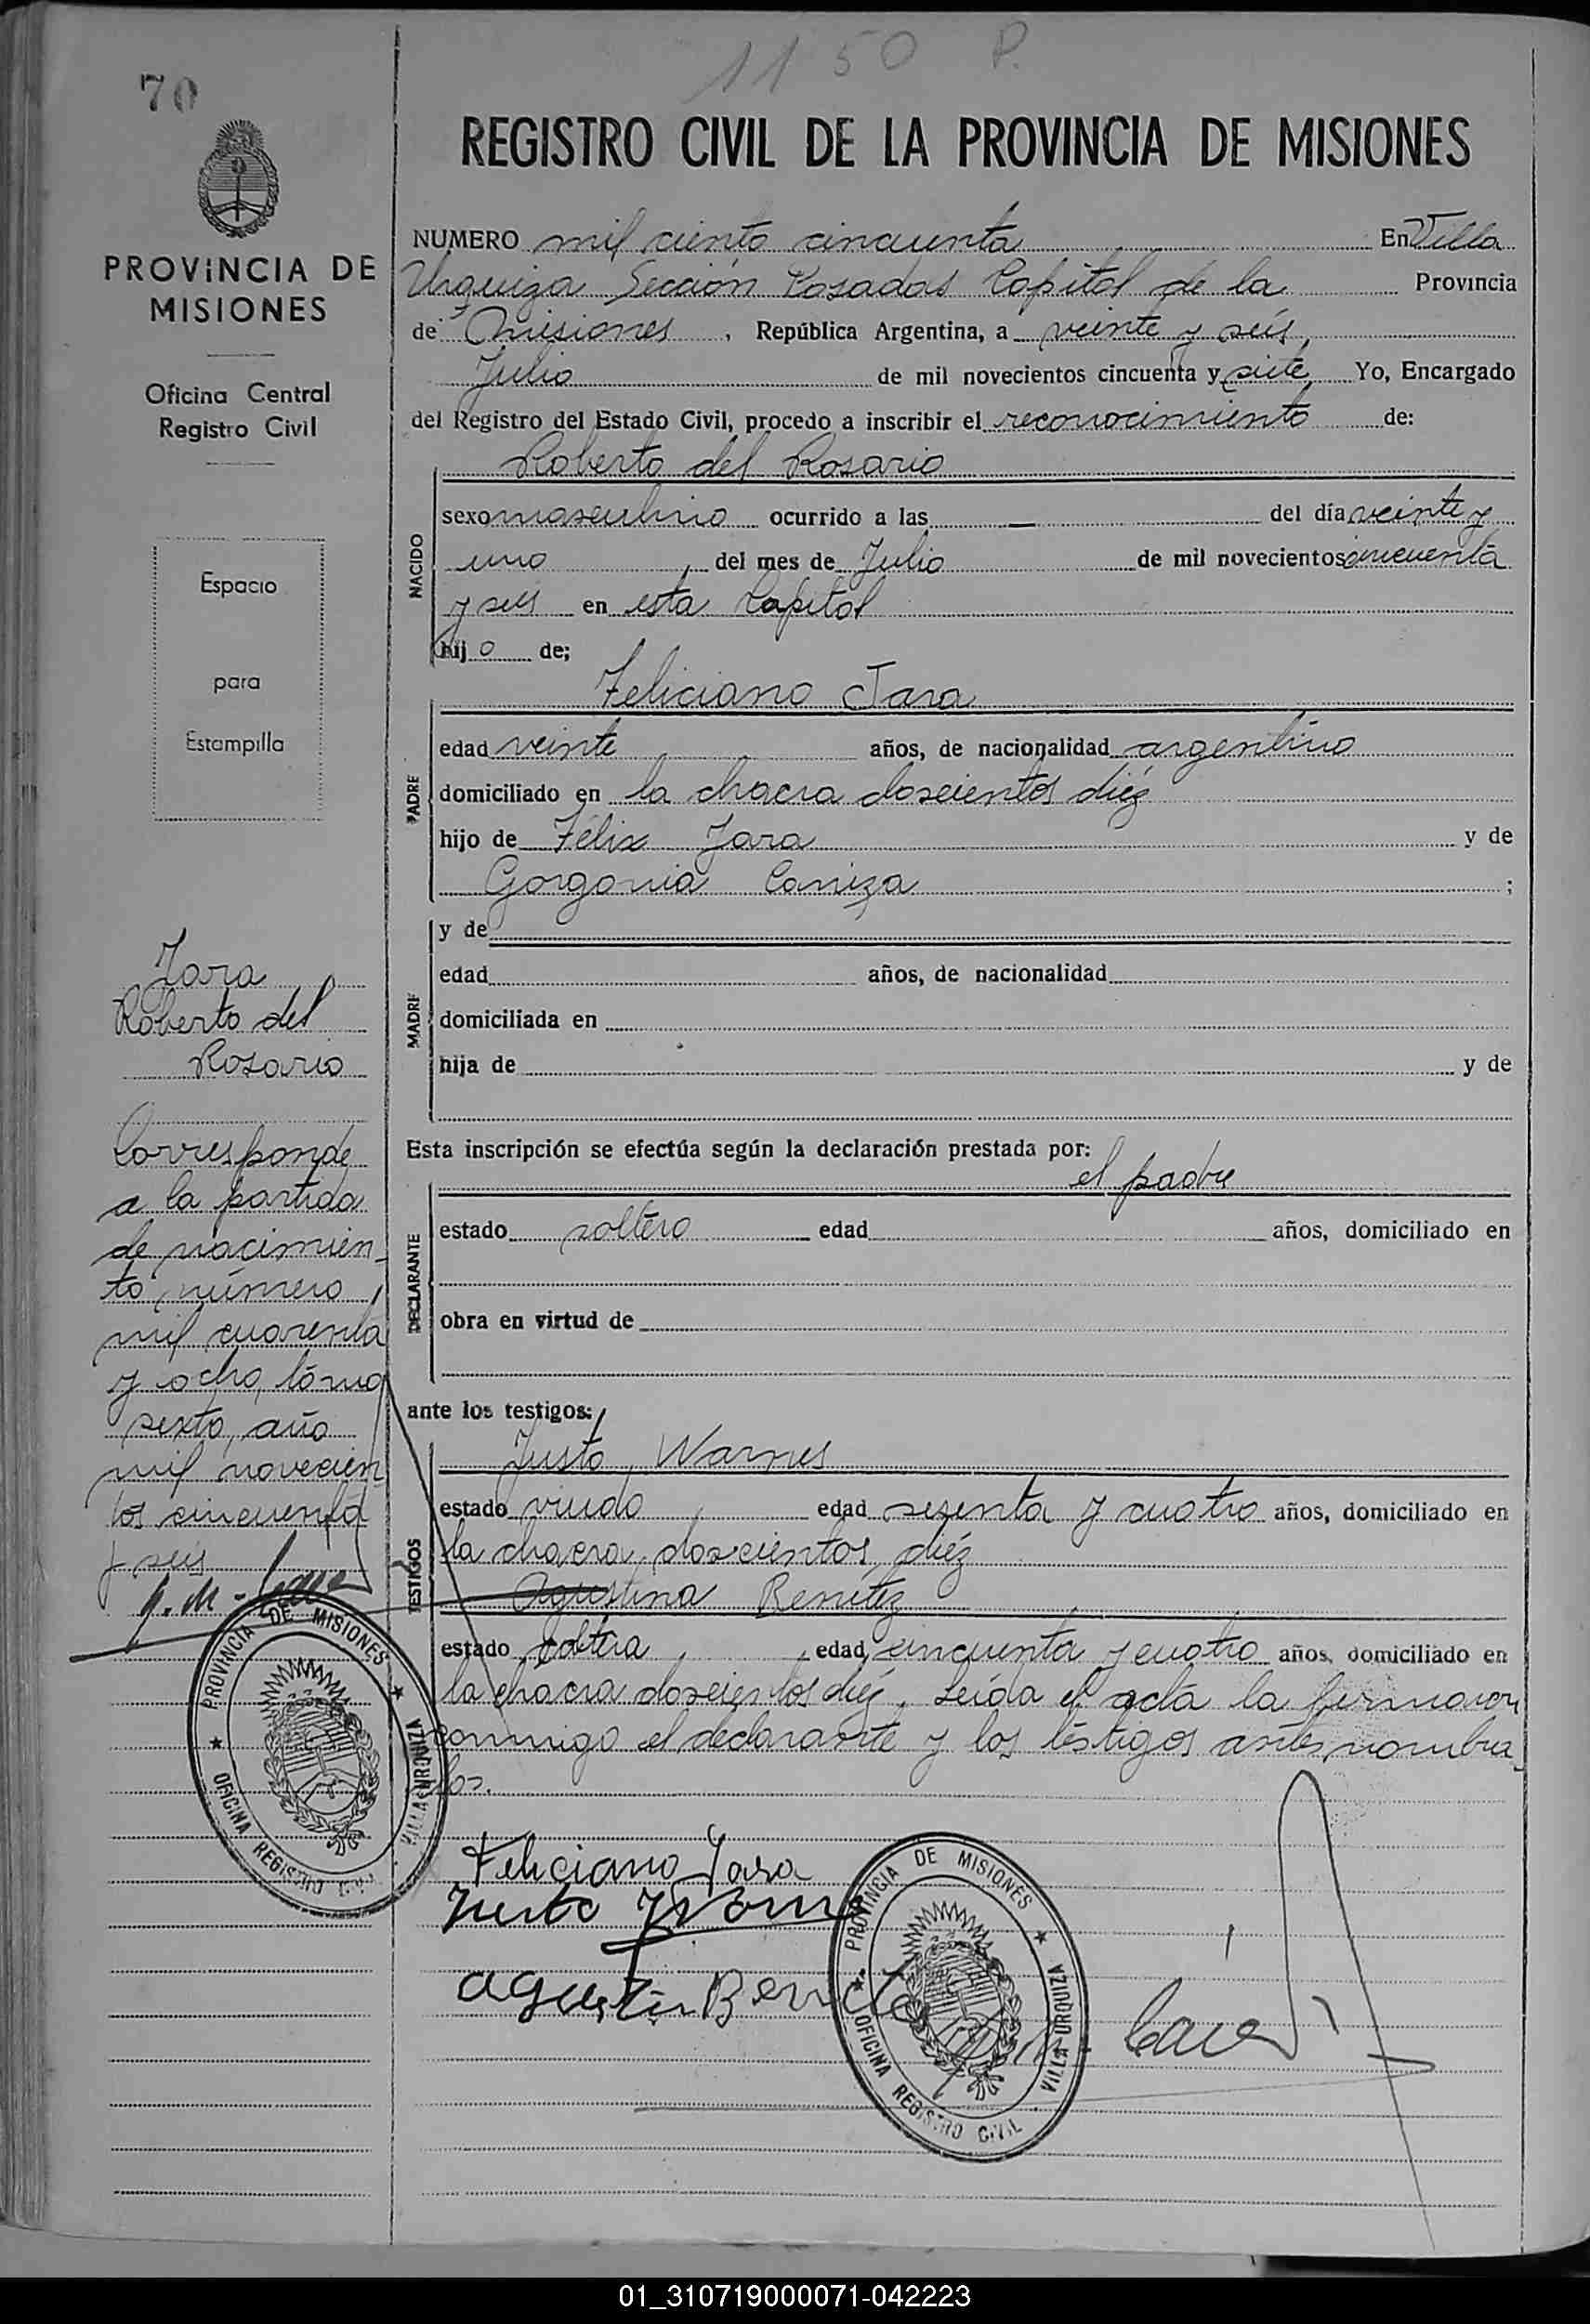 1150 P.
70
REGISTRO CIVIL DE LA PROVINCIA DE MISIONES
PROVINCIA DE
MISIONES
Oficina Central
Registro Civil
Espacio
para
Estampilla
NUMERO mil ciento cincuenta En Villa
Urquiza Sección Posadas Capital de la Provincia
de Misiones, República Argentina, a veinte y seis
Julio de mil novecientos cincuenta y siete Yo, Encargado
del Registro del Estado Civil, procedo a inscribir el reconocimiento de:
Roberto del Rosario
NACIDO
sexo masculino ocurrido a las — del día veinte y
uno del mes de Julio de mil novecientos cincuenta
y seis en esta Capital
hij o de;
Feliciano Jara
PADRE
edad veinte años, de nacionalidad argentino
domiciliado en la chacra doscientos diéz
hijo de Félix Jara y de
Gorgonia Caniza ;
MADRE
y de
edad años, de nacionalidad
domiciliada en
hija de y de
Jara
Roberto del
Rosario
Corresponde
a la partida
de nacimien-
to número
mil cuarenta
y ocho, tómo
sexto, año
mil novecien
tos cincuenta
y seis
Esta inscripción se efectúa según la declaración prestada por:
el padre
DECLARANTE
estado soltero edad años, domiciliado en
obra en virtud de
ante los testigos:
TESTIGOS
Justo Warnes
estado viudo edad sesenta y cuatro años, domiciliado en
la chacra doscientos diéz
Agustina Benitez
estado soltera edad cincuenta y cuatro años, domiciliado en
la chacra doscientos diéz. Leída el acta la firmaron
conmigo el declarante y los téstigos antes nombra
dos.
Feliciano Jara
Justo Warnes
PROVINCIA DE MISIONES ★ VILLA URQUIZA
★ OFICINA REGISTRO CIVIL
PROVINCIA DE MISIONES ★ VILLA URQUIZA
★ OFICINA REGISTRO CIVIL
01_310719000071-042223